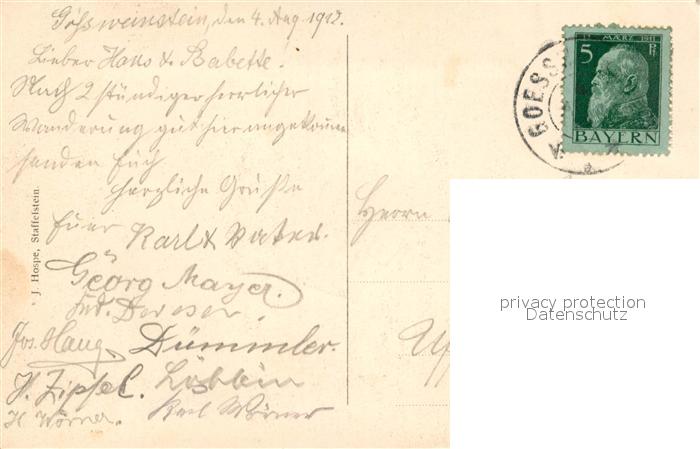 Gössweinstein, den 4. Aug 1912.
Lieber Hans & Babette!
Nach 2 stündiger herrlicher
Wanderung gut hier angekommen
senden Euch
herzliche Grüße
Euer Karl & Vater.
Georg Mayer.
Jos. Haug Dümmler.
H. Zipfel.
H. Wörner. Karl Wörner
J. Hospe, Staffelstein.
12 MÄRZ 1911
5 Pf
BAYERN
GOESS
Herrn
privacy protection
Datenschutz